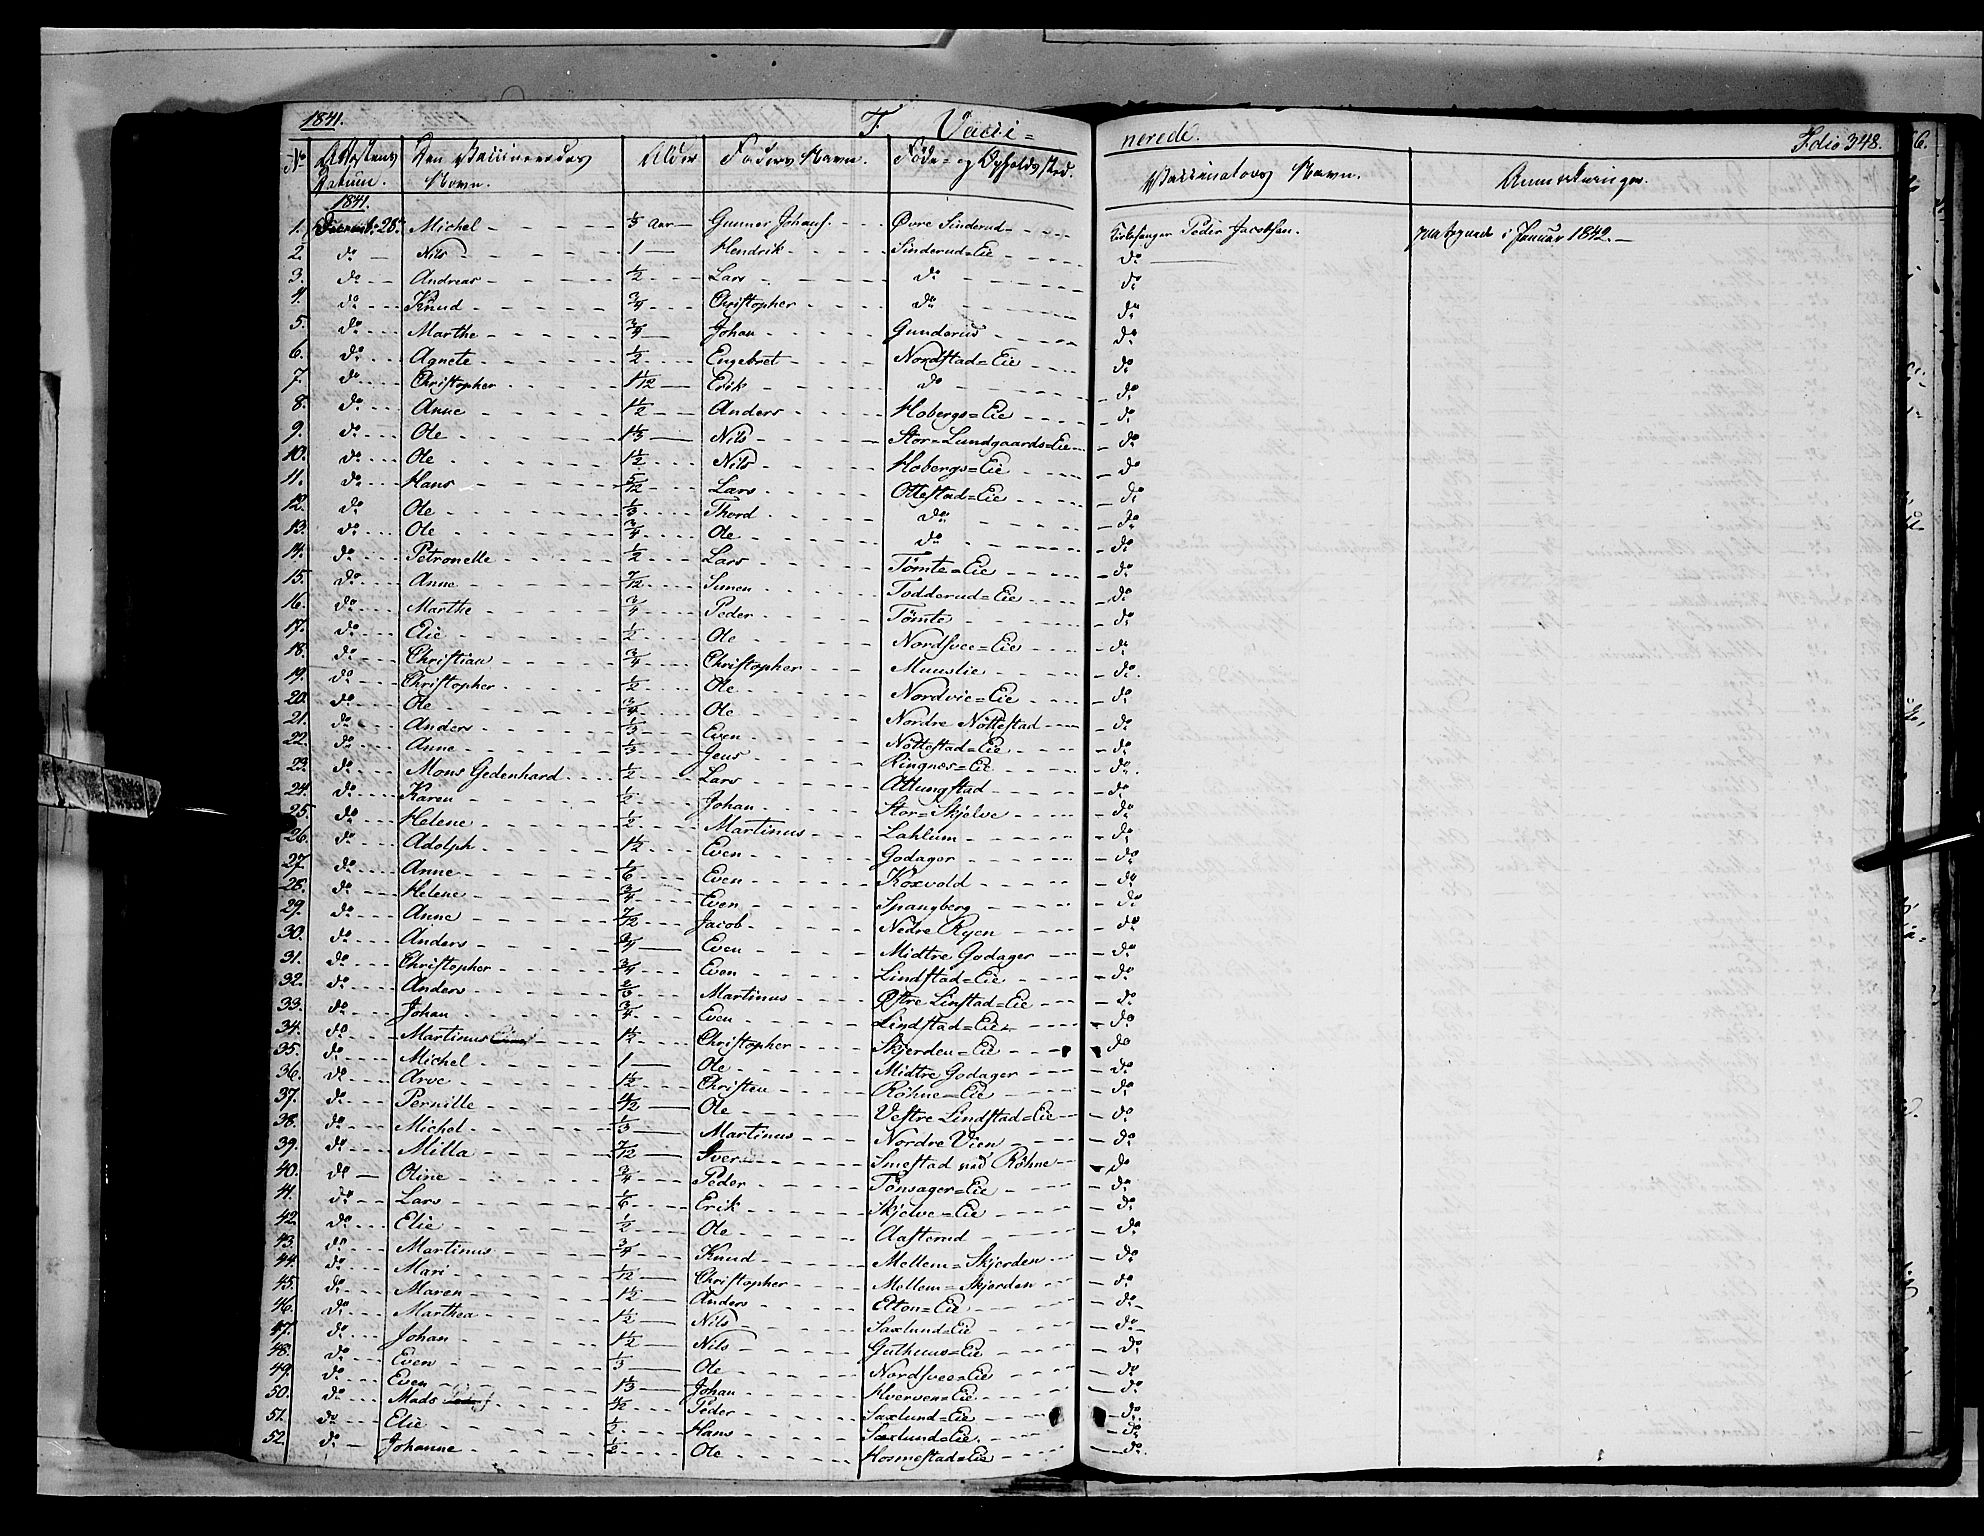 1841. F Vacci=
nerede. Folio 348.
No Attestens Datum. Den Vaccineredes Navn. Alder Faders Navn. Føde= og Opholds Sted. Vaccinatørs Navn. Anmærkninger.
1841.
1. Decemb. 28. Michel 1/3 Aar Gunner Johans. Øvre Sinderud Kirkesanger Peder Jacobsen. modtaget i Januar 1842.
2. do Nils 1 Hendrik Sinderud=Eie do
3. do Andreas 1/2 Lars do do
4. do Knud 3/4 Christopher do do
5. do Marthe 3/4 Johan Gunderud do
6. do Agnete 1/2 Engebret Nordstad=Eie do
7. do Christopher 1 1/12 Erik do do
8. do Anne 1 1/2 Anders Hobergs=Eie do
9. do Ole 1 1/3 Nils Stor=Lundgaards=Eie do
10. do Ole 1 1/2 Nils Hobergs=Eie do
11. do Hans 5/12 Lars Ottestad=Eie do
12. do Ole 1/3 Thord do do
13. do Ole 3/4 Ole do do
14. do Petronelle 1/2 Lars Tømte=Eie do
15. do Anne 7/12 Simen Fodderud=Eie do
16. do Marthe 3/4 Peder Tømte do
17. do Elie 1/2 Ole Nordsvee=Eie do
18. do Christian 3/4 Christopher Muuslie do
19. do Christopher 1/2 Ole Nordvie=Eie do
20. do Ole 3/4 Ole Nordre Nöttestad do
21. do Anders 1/3 Even Nöttestad=Eie do
22. do Anne 1/3 Jens Ringnæs=Ei do
23. do Mons Gedenhard 1/2 Lars Attungstad do
24. do Karen 1/2 Johan Stor=Skjelve do
25. do Helene 1/2 Martinus Lahlum do
26. do Adolph 1 1/2 Even Godager do
27. do Anne 1/6 Even Koxvold do
28. do Helene 3/4 Even Spangberg do
29. do Anne 7/12 Jacob Nedre Ryen do
30. do Anders 3/4 Even Midtre Godager do
31. do Christopher 3/4 Even Lindstad=Eie do
32. do Anders 2/3 Martinus Østre Linstad=Eie do
33. do Johan 3/4 Even Lindstad=Eie do
34. do Martinus 1 1/2 Christopher Skjerden=Eie do
35. do Michel 1 Ole Midtre Godager do
36. do Arve 1 1/2 Christen Röhne=Eie do
37. do Pernille 4/12 Ole Vestre Lindstad=Eie do
38. do Michel 1/3 Martinus Nordre Vien do
39. do Milla 7/12 Iver Smestad ved Röhne do
40. do Oline 3/4 Peder Tönsager=Eie do
41. do Lars 1/6 Erik Skjelve=Eie do
42. do Elie 1/2 Ole Aasterud do
43. do Martinus 3/4 Knud Mellem=Skjerden do
44. do Mari 1/12 Christopher Mellem=Skjerden do
45. do Maren 1 1/2 Anders Elton=Eie do
46. do Marthea 1 1/2 Nils Saxlund=Eie do
47. do Johan 1 1/2 Nils Guthuus=Eie do
48. do Even 1/3 Ole Nordsvee=Eie do
49. do Even 1 1/3 Johan Hverven=Eie do
50. do Mads Peder Saxlund=Eie do
51. do Elie 1/2 Hans Saxlund=Eie do
52. do Johanne 1/2 Ole Hosmestad=Eie do